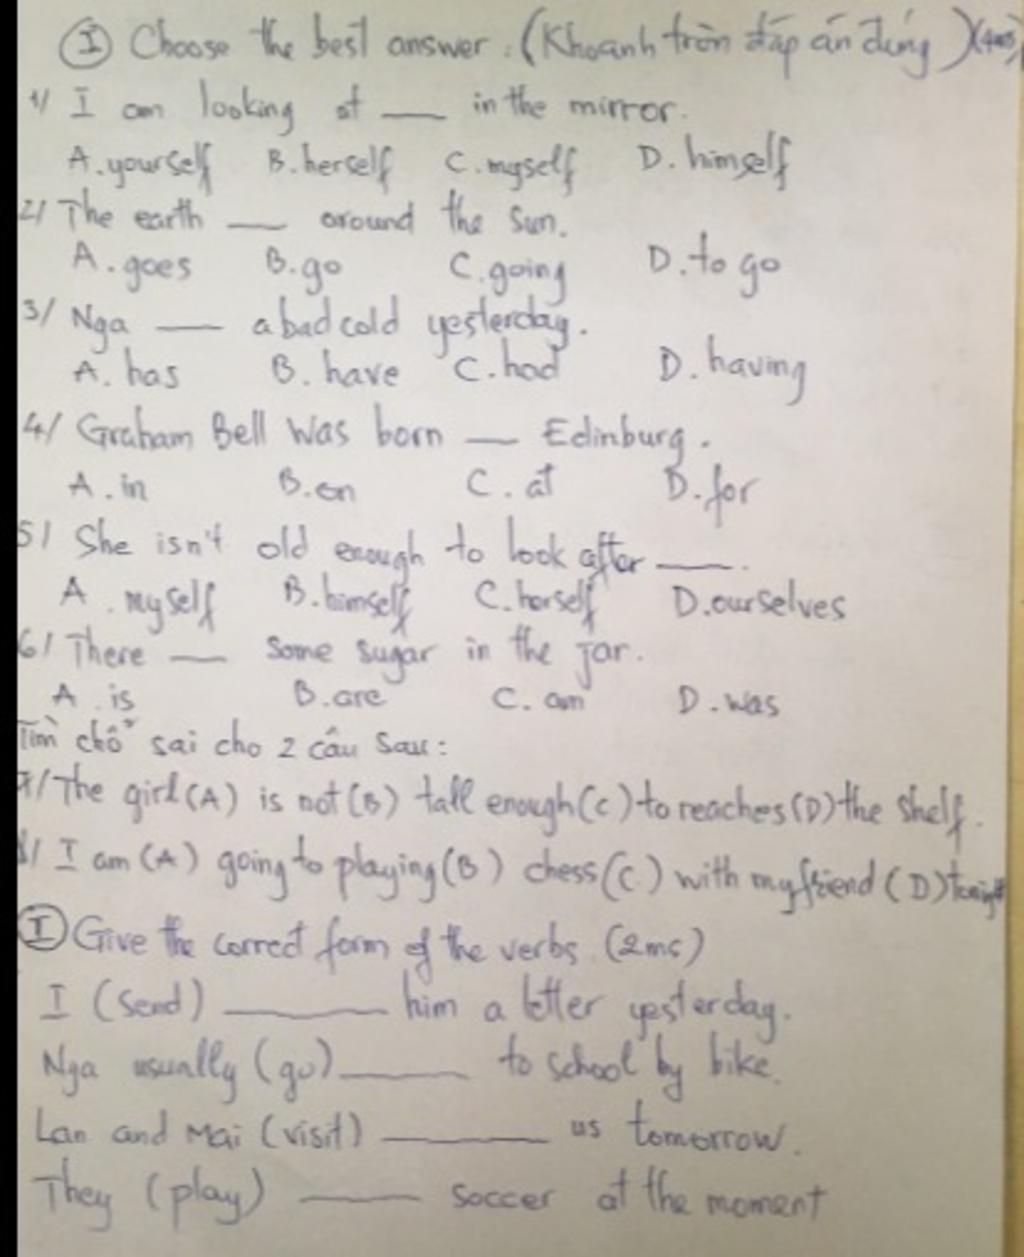 I Choose the best answer : (Khoanh tròn đáp án đúng)
1/ I am looking at ___ in the mirror.
A. yourself B. herself C. myself D. himself
2/ The earth ___ around the sun.
A. goes B. go C. going D. to go
3/ Nga ___ a bad cold yesterday.
A. has B. have C. had D. having
4/ Graham Bell was born ___ Edinburg.
A. in B. on C. at D. for
5/ She isn't old enough to look after ___.
A. myself B. himself C. herself D. ourselves
6/ There ___ some sugar in the jar.
A. is B. are C. am D. was
Tìm chỗ sai cho 2 câu sau:
7/ The girl (A) is not (B) tall enough (C) to reaches (D) the shelf.
8/ I am (A) going to playing (B) chess (C) with my friend (D) tonight
I Give the correct form of the verbs. (2ms)
I (send) ______ him a letter yesterday.
Nga usually (go) ______ to school by bike.
Lan and Mai (visit) ______ us tomorrow.
They (play) ______ soccer at the moment